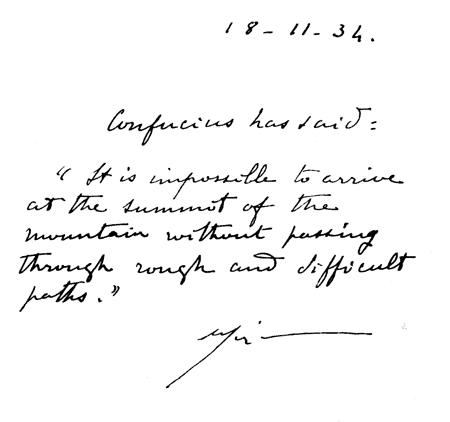 18-11-34.
Confucius has said:
" It is impossible to arrive
at the summit of the
mountain without passing
through rough and difficult
paths."